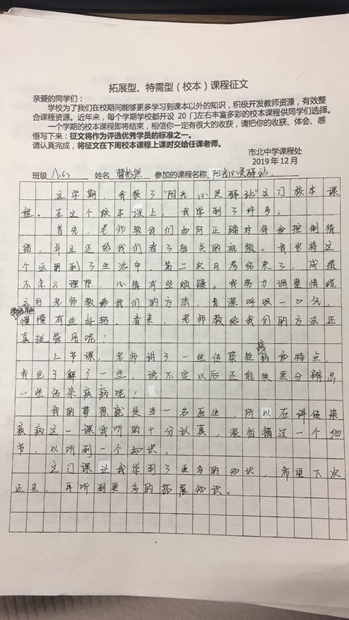 拓展型、特需型（校本）课程征文
亲爱的同学们：
学校为了我们在校期间能够更多学习到课本以外的知识，积极开发教师资源，有效整
合课程资源。近年来，每个学期学校都开设 20 门左右丰富多彩的校本课程供同学们选择。
一个学期的校本课程即将结束，相信你一定有很大的收获，请把你的收获、体会、感
悟写下来；征文将作为评选优秀学员的标准之一。
请认真完成，将征文在下周校本课程上课时交给任课老师。
市北中学课程处
2019 年 12 月
班级 八(6) 姓名 参加的课程名称 阳光心灵驿站
这学期，我报了“阳光心灵驿站”这门校本课
程。在这个校本课上，我学到了许多。
首先，老师教我们如何正确对待和控制情
绪，并且还给我们看了相关的视频。我也将这
个运用到了生活中，第二次月考结束了，成绩
不尽人理想，心情有些烦躁。我努力调整情绪，
运用老师教给我们的方法，先深呼吸一口气，
慢慢有些好转。看来，老师教给我们的方法还
真说管用呢！
上节课，老师讲了一些传染性疾病的特点，
我也了解了一些，说不定以后还能快速分辨出
一些传染疾病呢！
我的梦想就是当一名医生，所以在讲传染
疾病这一课我听的十分认真，不会错过一个细
节，以听到一个知识。
这门课让我学到了更多的知识，希望下次
还来，再听到更多的拓展知识。